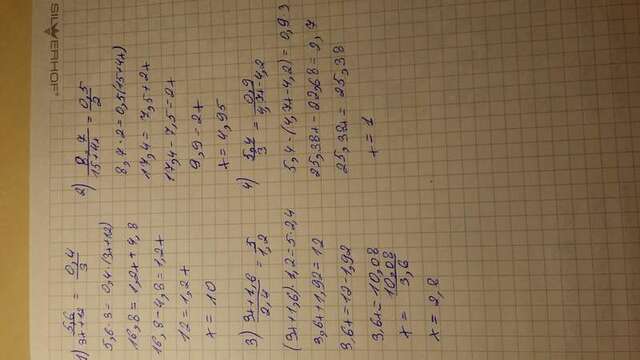 SILWERHOF
1) 5,6/(3x+12) = 0,4/3
5,6·3 = 0,4·(3x+12)
16,8 = 1,2x+4,8
16,8-4,8 = 1,2x
12 = 1,2x
x = 10
2) 8,7/(15+4x) = 0,5/2
8,7·2 = 0,5(15+4x)
17,4 = 7,5+2x
17,4-7,5 = 2x
9,9 = 2x
x = 4,95
3) (3x+1,6)/2,4 = 5/1,2
(3x+1,6)·1,2 = 5·2,4
3,6x+1,92 = 12
3,6x = 12-1,92
3,6x = 10,08
x = 10,08/3,6
x = 2,8
4) 5,4/3 = 0,9/(4,7x-4,2)
5,4-(4,7x-4,2) = 0,9 3
25,38x-22,68 = 2,7
25,38x = 25,38
x = 1